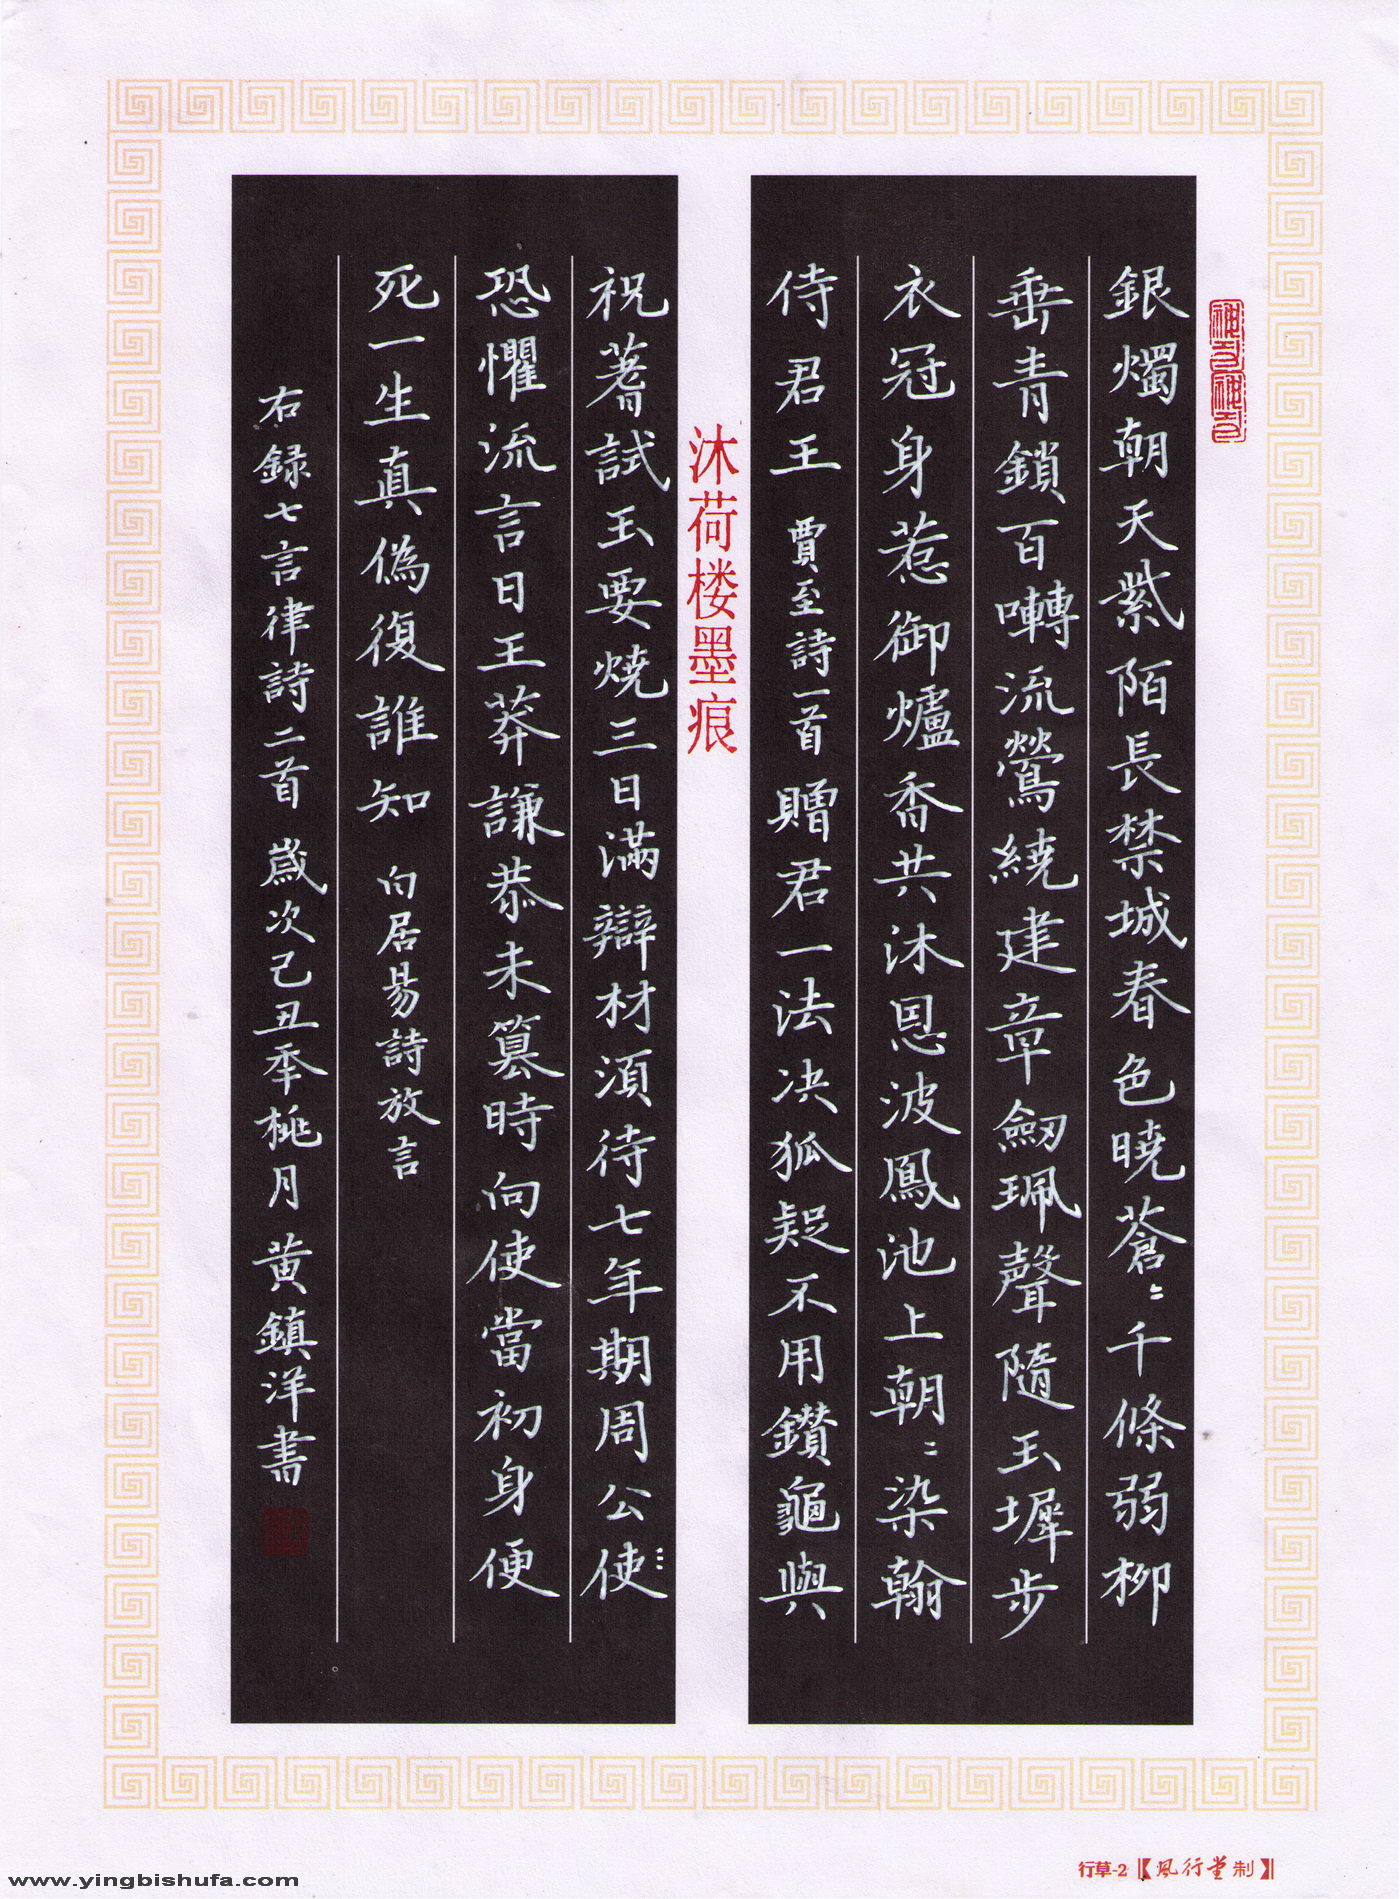 銀燭朝天紫陌長禁城春色曉蒼〻千條弱柳
垂青鎖百囀流鶯繞建章劔珮聲隨玉墀步
衣冠身惹御爐香共沐恩波鳳池上朝〻染翰
侍君王 賈至詩一首 贈君一法決狐疑不用鑽龜與
沐荷楼墨痕
祝蓍試玉要燒三日滿辯材須待七年期周公使
恐懼流言日王莽謙恭未篡時向使當初身便
死一生真偽復誰知 白居易詩放言
右録七言律詩二首 歲次己丑季桃月 黄鎮洋書
行草-2【風行堂制】
www.yingbishufa.com